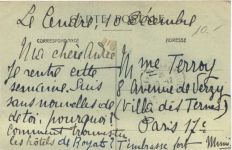 Le Cendre, 10 Décembre
10.-
CARTE POSTALE
CORRESPONDANCE
ADRESSE
Ma chère
Je rentre cette
semaine. Suis
sans nouvelles de
de toi, pourquoi?
comment trouves tu
les hôtels de Royat?
Mme Terroy
8 Avenue de Verzy
(Villa des Ternes)
Paris 17e
Timbrasse fort Mimi